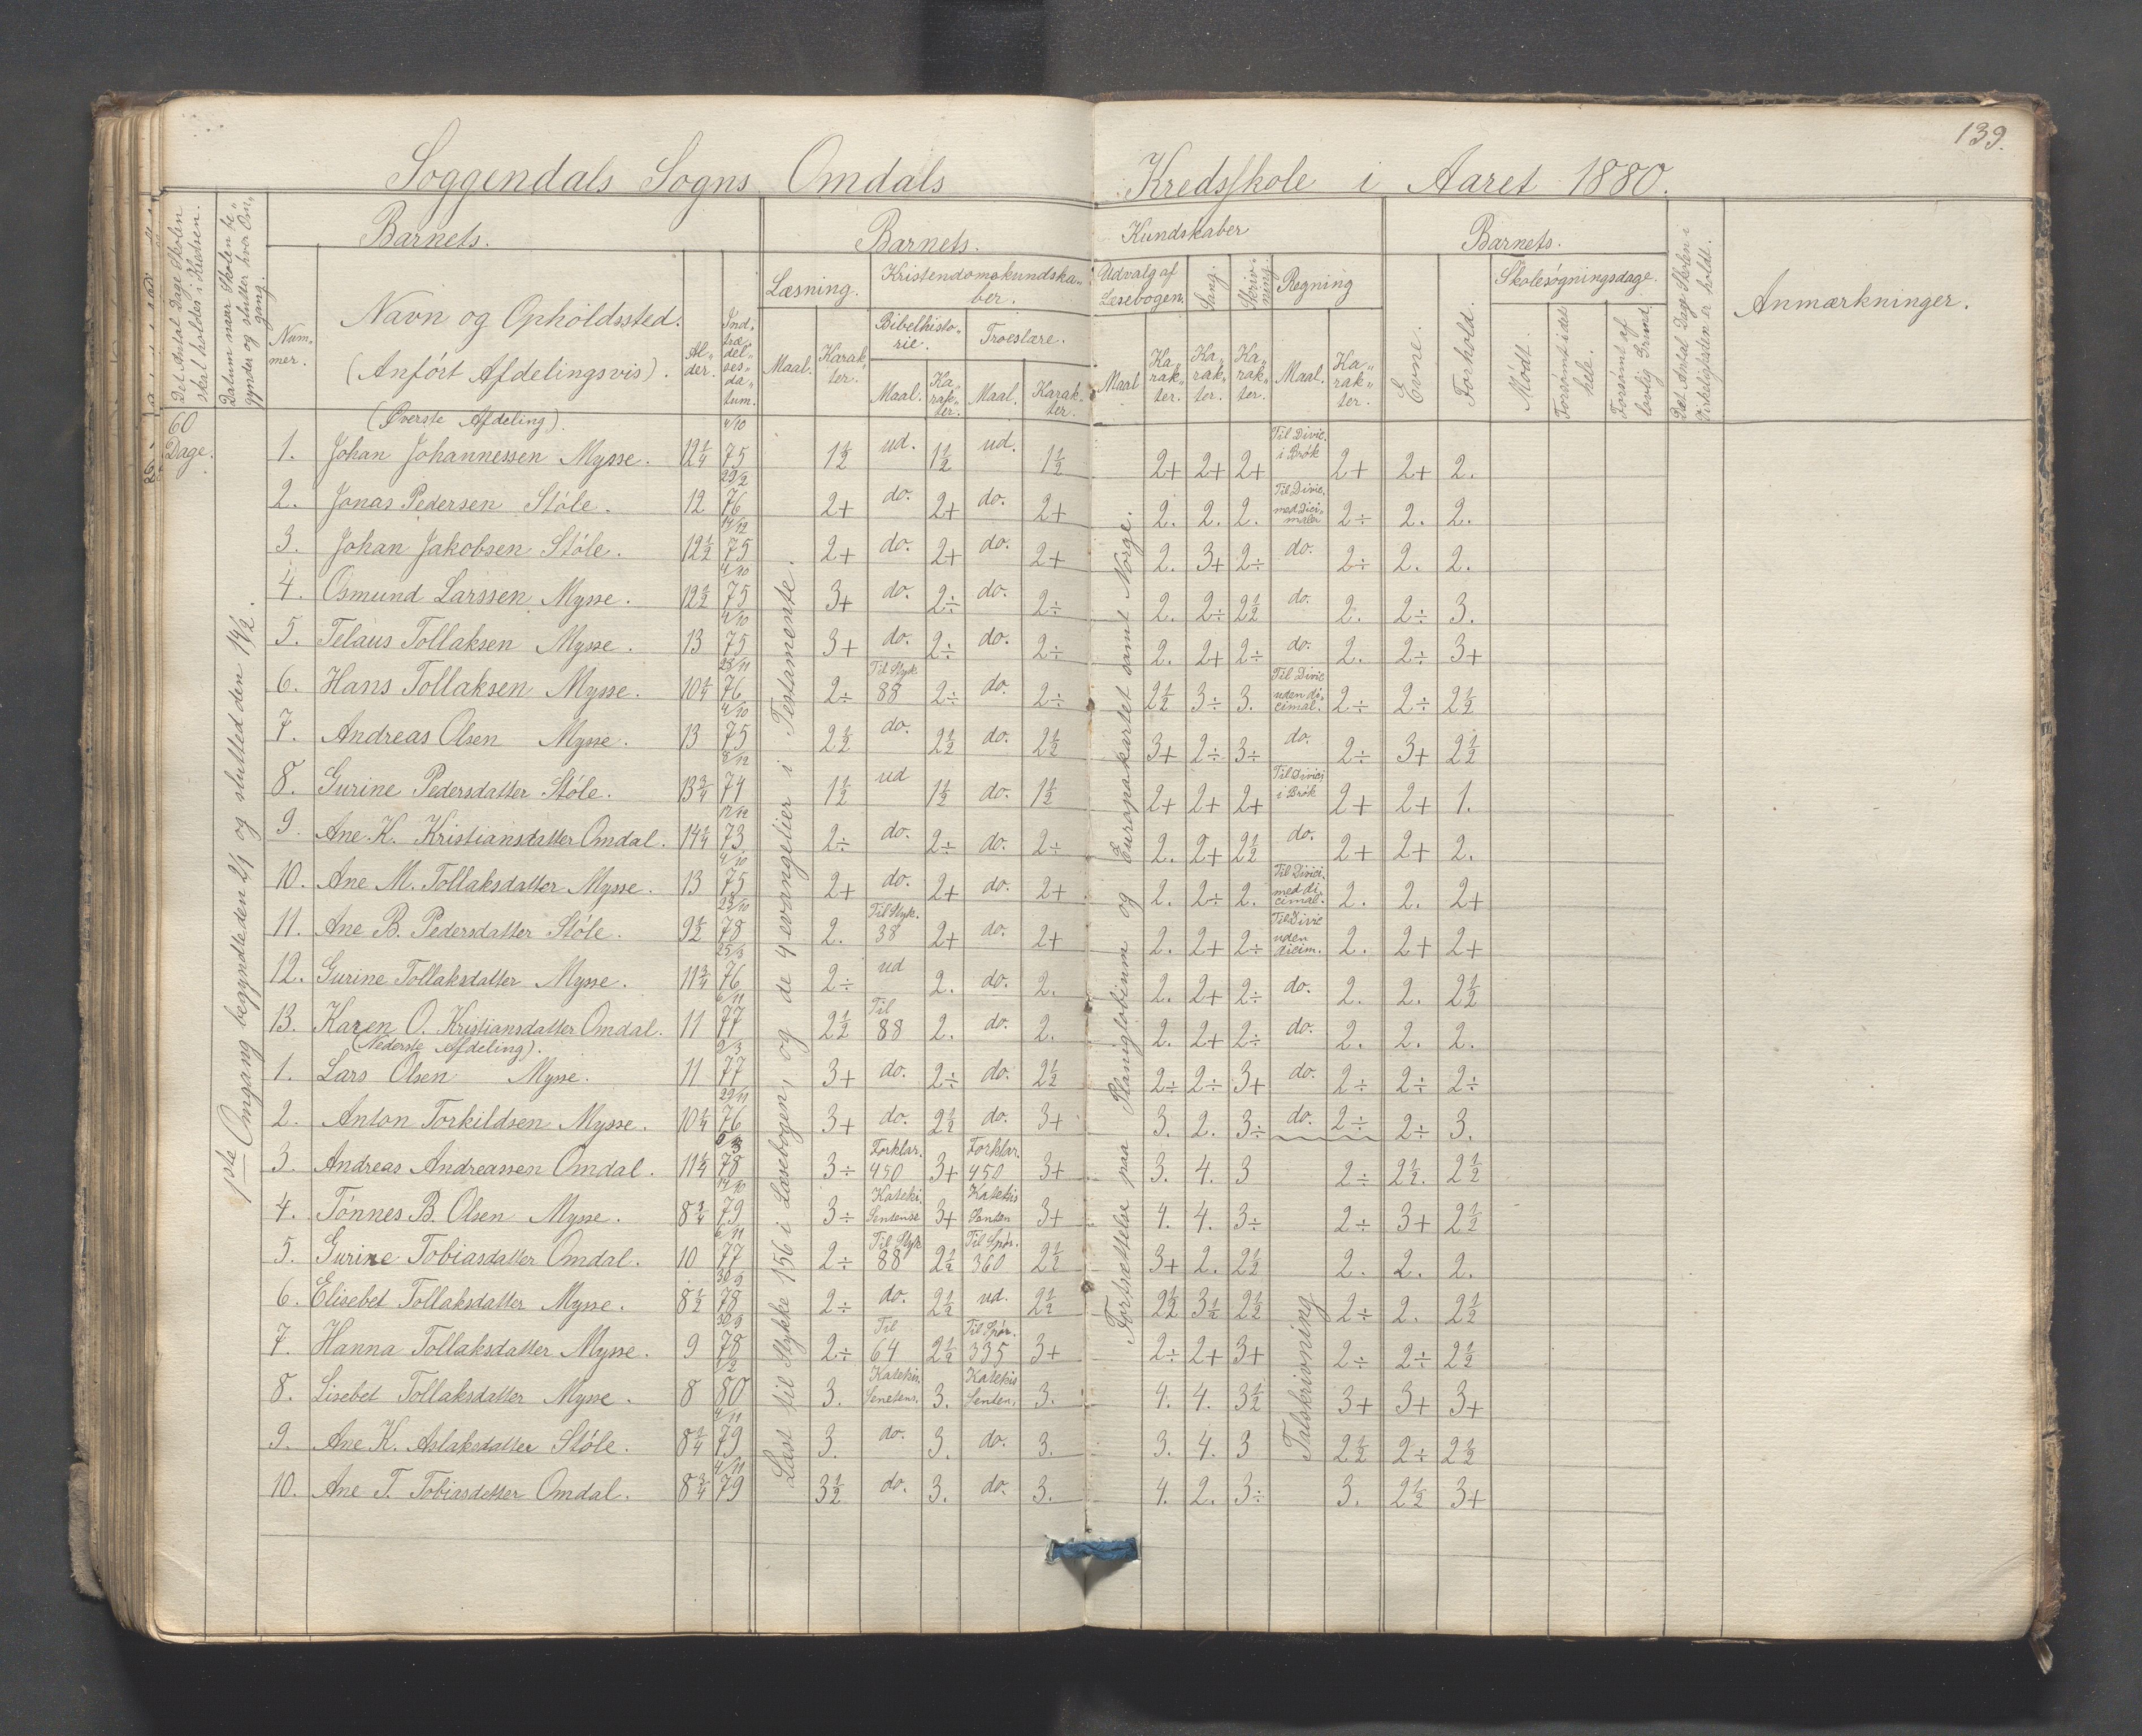 139.
Soggendals Sogns Omdals Kredsskole i Aaret 1880.
Det Antal Dage Skolen skal holdes i Kredsen.
Datum naar Skolen be„gynder og slutter hver Om„gang.
Barnets.
Num„mer.
Navn og Opholdssted.
(Anført Afdelingsvis).
Al„der.
Ind„træ„del„ses„da„tum.
Barnets.
Kundskaber
Læsning.
Maal.
Karak„ter.
Kristendomskundska„ber.
Bibelhisto„rie.
Maal.
Ka„rak„ter.
Troeslære.
Maal.
Karak„ter.
Udvalg af Læsebogen.
Maal
Ka„rak„ter.
Sang.
Ka„rak„ter.
Skriv„ning.
Ka„rak„ter.
Regning
Maal.
Ka„rak„ter.
Barnets.
Evne.
Forhold.
Skolesøgningsdage.
Mødt.
Forsømt i det hele.
Forsømt af lovlig Grund.
Det Antal Dage Skolen i Virkeligheden er holdt.
Anmærkninger.
60 Dage.
1ste Omgang begyndte den 2/1 og slutted den 14/2.
Læst til Stykke 156 i Læsebogen, og de 4 evangelier i Testamente.
Fortsættelse paa Planiglobium og Europakartet samt Norge.
(Øverste Afdeling).
1. Johan Johannessen Mysse. 12 1/4 4/10 75 1 1/2 ud. 1 1/2 ud. 1 1/2 2+ 2+ 2+ Til Divic. i Brøk 2+ 2+ 2.
2. Jonas Pedersen Støle. 12 29/2 76 2+ do. 2+ do. 2+ 2. 2. 2. Til Divic. med Dici„maler 2÷ 2. 2.
3. Johan Jakobsen Støle. 12 1/2 14/12 75 2+ do. 2+ do. 2+ 2. 3+ 2÷ do. 2÷ 2. 2.
4. Osmund Larssen Mysse. 12 1/2 4/10 75 3+ do. 2÷ do. 2÷ 2. 2÷ 2 1/2 do. 2. 2÷ 3.
5. Telaus Tollaksen Mysse. 13 4/10 75 3+ do. 2÷ do. 2÷ 2. 2+ 2÷ do. 2. 2÷ 3+
6. Hans Tollaksen Mysse. 10 1/4 23/11 76 2÷ Til Styk 88 2÷ do. 2÷ 2 1/2 3÷ 3. Til Divic uden di„cimal. 2÷ 2÷ 2 1/2
7. Andreas Olsen Mysse. 13 4/10 75 2 1/2 do. 2 1/2 do. 2 1/2 3+ 2÷ 3÷ do. 2÷ 3+ 2 1/2
8. Gurine Pedersdatter Støle. 13 3/4 8/12 74 1 1/2 ud 1 1/2 do. 1 1/2 2+ 2+ 2+ Til Divici i Brøk 2+ 2+ 1.
9. Ane K. Kristiansdatter Omdal. 14 1/4 12/12 73 2÷ do. 2÷ do. 2÷ 2. 2+ 2 1/2 do. 2+ 2+ 2.
10. Ane M. Tollaksdatter Mysse. 13 4/10 75 2+ do. 2+ do. 2+ 2. 2÷ 2. Til Divici. med di„cimal. 2. 2. 2+
11. Ane B. Pedersdatter Støle. 9 1/2 23/10 78 2. Til Styk. 38 2+ do. 2+ 2. 2+ 2÷ Til Divic uden dicim. 2. 2+ 2+
12. Gurine Tollaksdatter Mysse. 11 3/4 25/3 76 2÷ ud 2. do. 2. 2. 2+ 2÷ do. 2. 2. 2 1/2
13. Karen O. Kristiansdatter Omdal. 11 6/11 77 2 1/2 Til 88 2. do. 2. 2. 2+ 2÷ do. 2. 2. 2.
(Nederste Afdeling).
1. Lars Olsen Mysse. 11 2/3 77 3+ do. 2÷ do. 2 1/2 2÷ 2÷ 3+ do. 2÷ 2÷ 2÷
2. Anton Torkildsen Mysse. 10 1/4 29/11 76 3+ do. 2 1/2 do. 3+ 3. 2. 3÷ do. 2÷ 2÷ 3.
3. Andreas Andreassen Omdal. 11 1/4 78 3÷ Forklar. 450 3+ Forklar. 450 3+ 3. 4. 3 2÷ 2 1/2. 2 1/2
4. Tønnes B. Olsen Mysse. 8 3/4 14/10 79 3÷ Kateki. Sentense 3+ Katekis Senten 3+ 4. 4. 3÷ 2÷ 3+ 2 1/2
5. Gurine Tobiasdatter Omdal. 10 6/11 77 2÷ Til Styk 88 2 1/2 Til Spør. 360 2 1/2 3+ 2. 2 1/2 2. 2. 2.
6. Elisebet Tollaksdatter Mysse. 8 1/2 30/9 78 2÷ do. 2 1/2 ud. 2 1/2 2 1/2 3 1/2 2 1/2 2÷ 2. 2 1/2
7. Hanna Tollaksdatter Mysse. 9 30/9 78 2÷ Til 64 2 1/2 Til Spør. 335 3+ 2÷ 2+ 3+ 2÷ 2÷ 2 1/2
8. Lisebet Tollaksdatter Mysse. 8 1/2 80 3. Katekis. Senetens. 3. Katekis Senten. 3. 4. 4. 3 1/2 3+ 3+ 3+
9. Ane K. Aslaksdatter Støle. 8 1/4 4/11 79 3. do. 3. do. 3. 3. 4. 3 2 1/2 2÷ 2 1/2
10. Ane T. Tobiasdatter Omdal. 8 3/4 4/11 79 3 1/2 do. 3. do. 3. 4. 2. 3÷ 3. 2 1/2 3+
Talskrivning